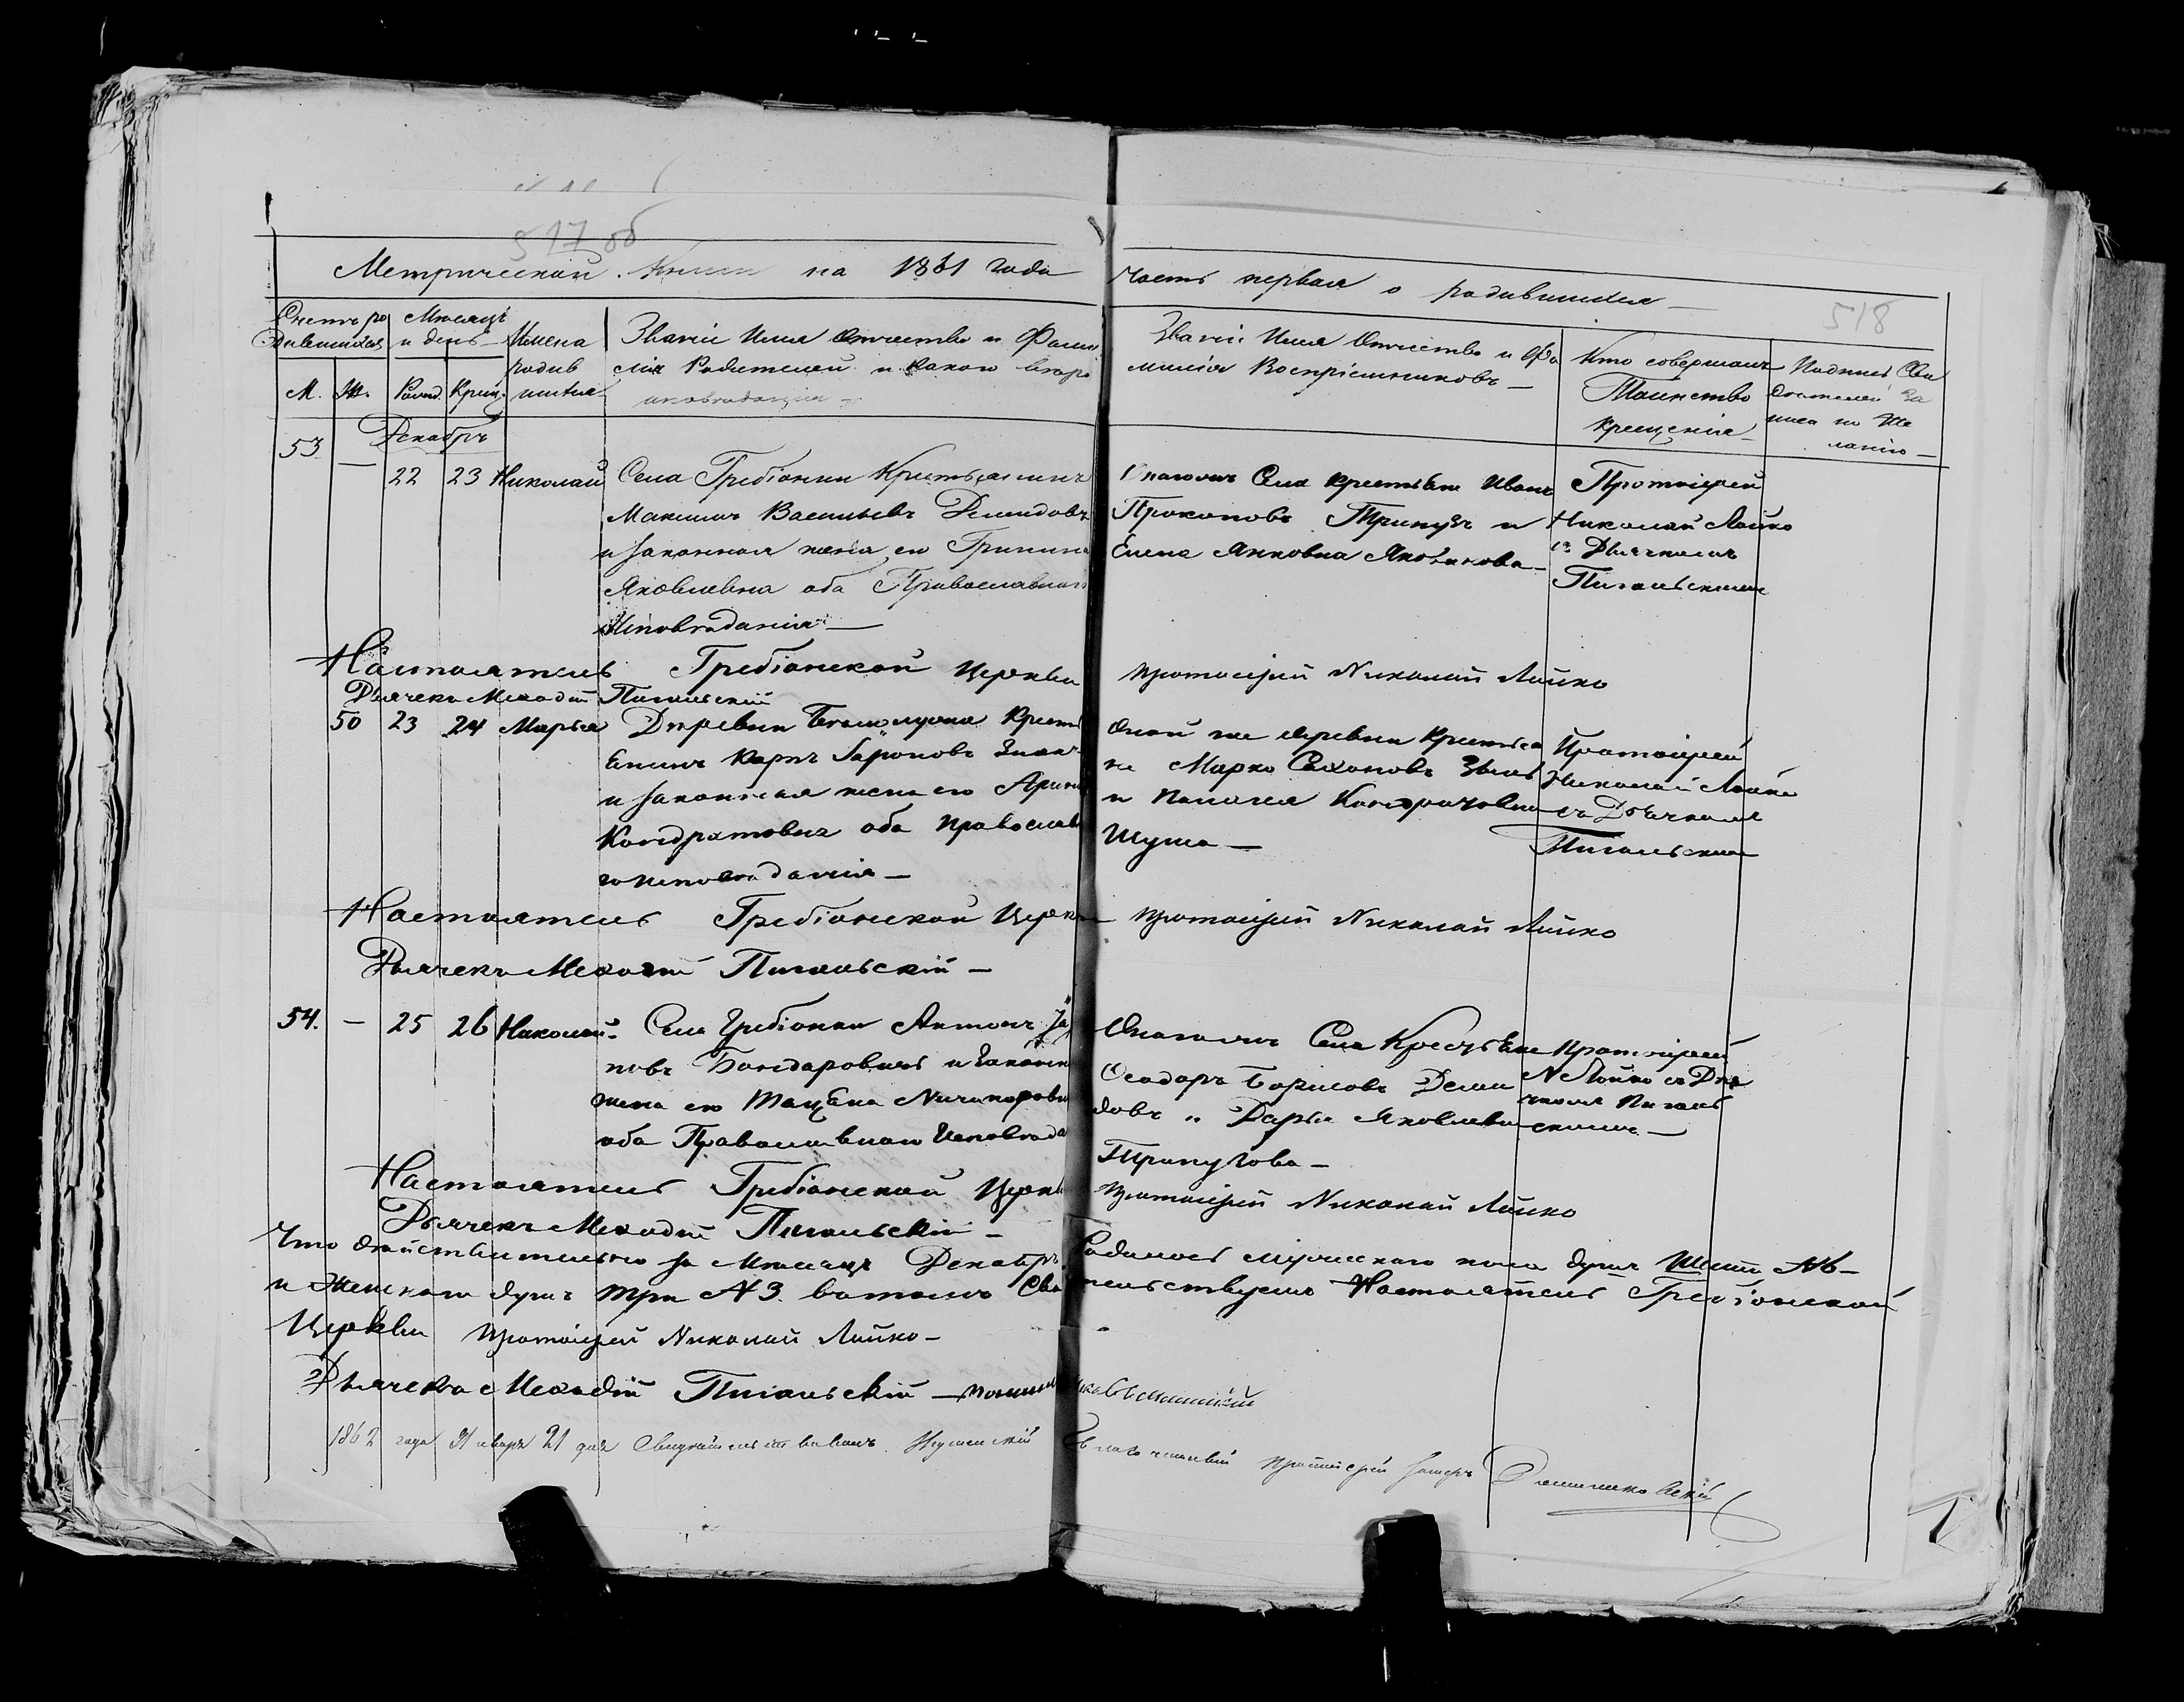 517 об
Метрической Книги на 1861 года
Часть первая о родившихся
518
Счетъ ро
дившихся
Месяцъ
и день
Имена
родив
шихся
Званіе Имя Отчество и Фами
лія Родителей и какого веро
исповѣданія
Званіе Имя Отчество и Фа
милія Воспріемниковъ
Кто совершалъ
Таинство
крещенія
Подпись Сви
дѣтелей за
писи по же
ланію
М. Ж. Рожд. Крещ.
Декабрь
53 — 22 23 Николай
Села Гребіонки Крестьянинъ
Максимъ Васильевъ Демидовъ
и законная жена его
Яковлевна оба Православнаго
Исповѣданія
Онагожъ Села крестьяне Иванъ
Прокоповъ Трипузъ и
Елена
Протоіерей
Николай Лойко
съ Дьячкомъ
Пигальскимъ
Настоятель Гребіонской Церкви протоіерей Николай Лойко
Дьячекъ Меходій Пигальскій
50 23 24 Марья
Деревни Кресть
янинъ Карпъ
и законная жена его Арина
Кондратовна оба православна
го исповѣданія
Оной же деревни Крестья
не Марко
и Пелагея
Шуша
Протоіерей
Николай Лойко
съ Дьячкомъ
Пигальским
Настоятель Гребіонской Церкви протоіерей Николай Лойко
Дьячекъ Меходій Пигальскій
54. — 25 26 Николай
Села Гребіонки Антонъ
Бондаровичъ и законная
жена его Тацѣна Ничипоровна
оба Православнаго Исповѣда
Онагожъ Села Крестьяне
Ѳеодоръ Борисовъ Деми
довъ и Дарья Яковлевна
Трипузова
Протоіерей
Н Лойко съ Дья
чкомъ Пигаль
скимъ
Настоятель Гребіонской Церкви протоіерей Николай Лойко
Дьячекъ Меходій Пигальскій
Что дѣйствительно за Месяцъ Декабрь Родилось мужескаго пола душъ Шесть №6
и Женскаго душъ три №3. въ томъ Свидетельствуемъ Настоятель Гребіонской
Церкви протоіерей Николай Лойко
Дьячекъ Меходій Пигальскій
1862 года Января 21 дня Свидѣтельствовалъ Игуменскій Благочинный протоіерей